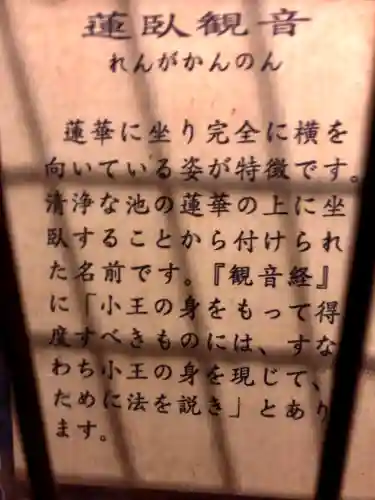 蓮臥観音
れんがかんのん
蓮華に坐り完全に横を
向いている姿が特徴です。
清浄な池の蓮華の上に坐
臥することから付けられ
た名前です。『観音経』
に「小王の身をもって得
度すべきものには、すな
わち小王の身を現じて、
ために法を説き」とあり
ます。